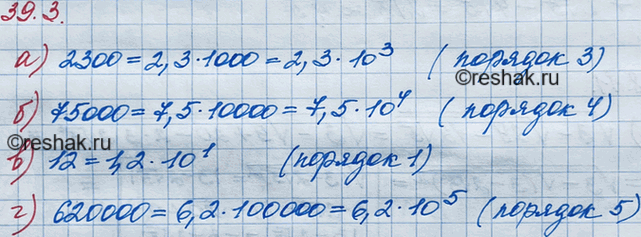 39.3.
а) 2300 = 2,3·1000 = 2,3·10³ (порядок 3)
©reshak.ru
б) 75000 = 7,5·10000 = 7,5·10⁴ (порядок 4)
©reshak.ru
в) 12 = 1,2·10¹ (порядок 1)
г) 620000 = 6,2·100000 = 6,2·10⁵ (порядок 5)
©reshak.ru